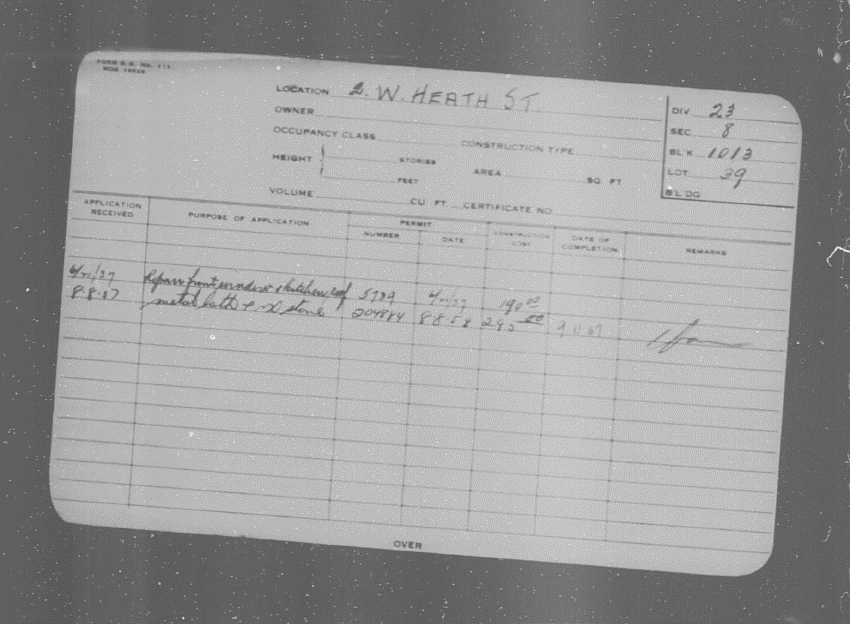 FORM B.B. No. 111
LOCATION 2. W. HEATH ST.
OWNER
OCCUPANCY CLASS CONSTRUCTION TYPE
HEIGHT STORIES AREA SQ FT
FEET
VOLUME CU FT CERTIFICATE NO
DIV. 23
SEC. 8
BL'K 1013
LOT 39
BLDG
APPLICATION RECEIVED PURPOSE OF APPLICATION PERMIT NUMBER DATE CONSTRUCTION COST DATE OF COMPLETION REMARKS
Repair front window & kitchen roof 5789 190 00
8.8.57 metal lath & stone 204884 8 8.58 295 00 9 11 57
OVER